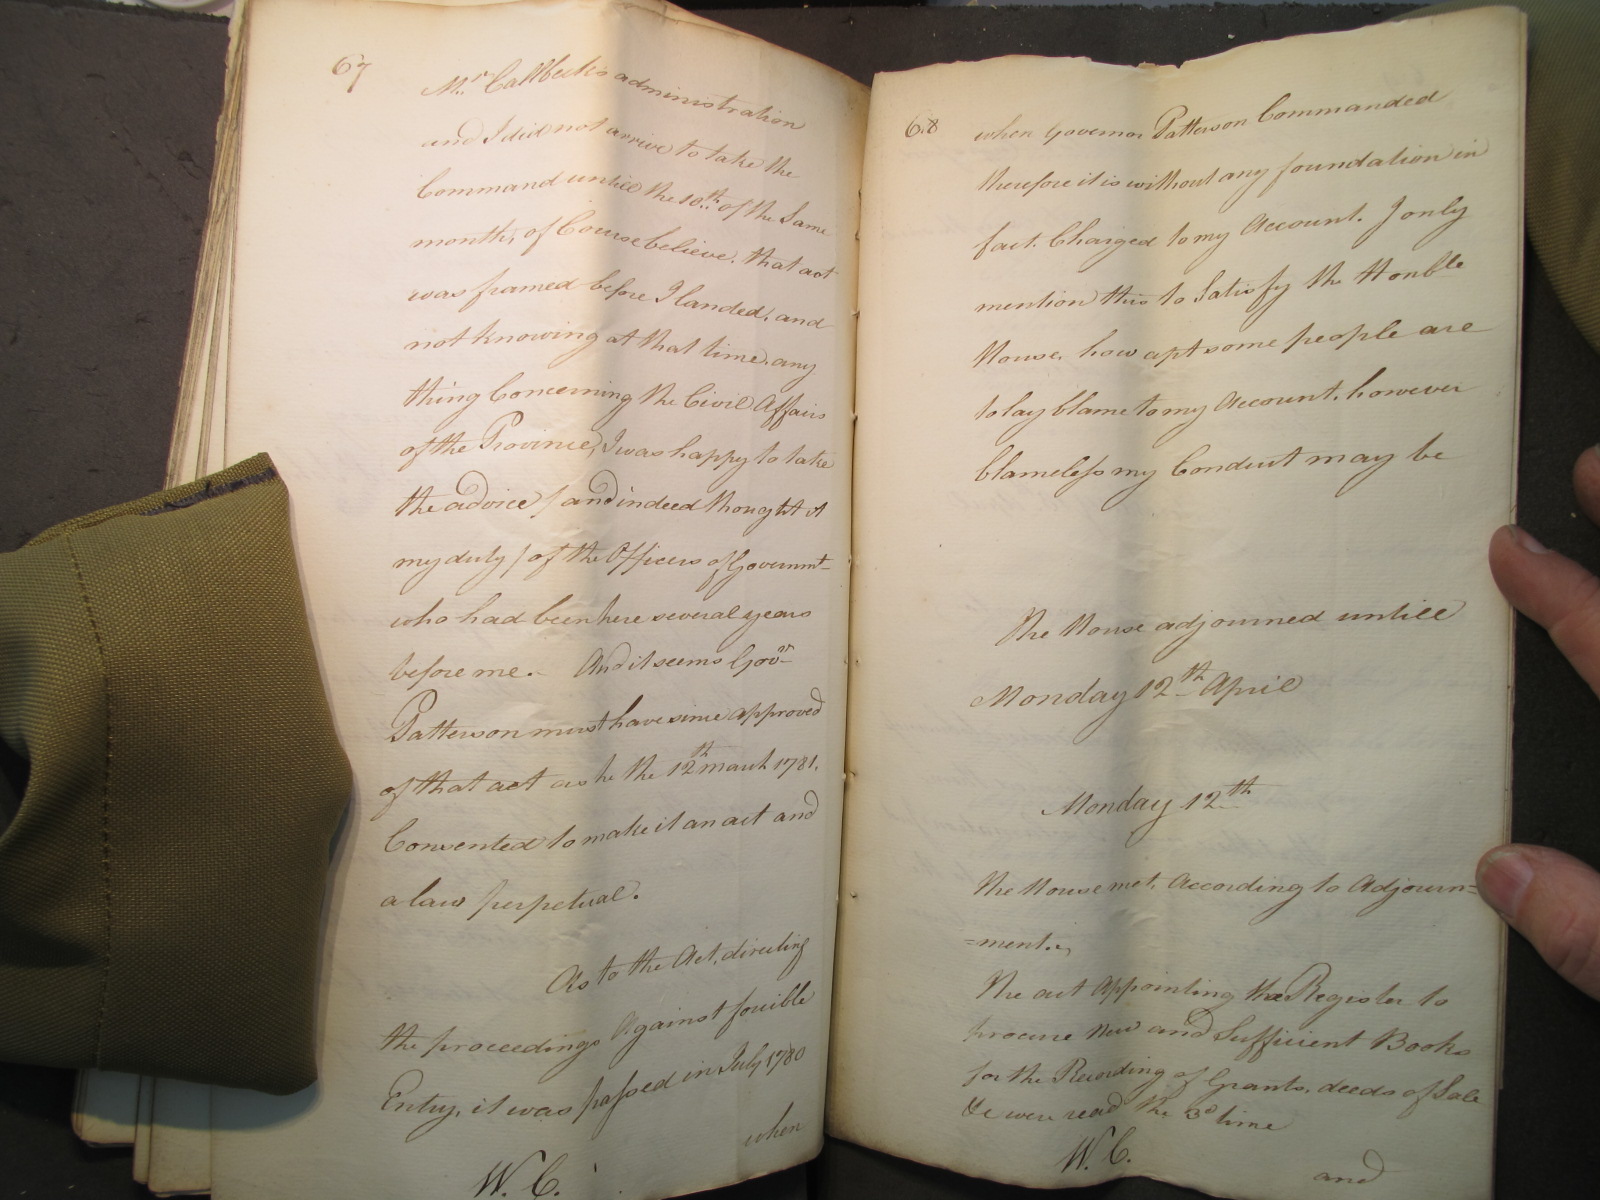 67
Mr. Callbeck's administration
and I did not arrive to take the
Command untill the 10th of the Same
month, of Course believe. that act
was framed before I landed, and
not knowing at that time. any
thing Concerning the Civil Affairs
of the Province, I was happy to take
the advice / and indeed thought it
my duty / of the Officers of Governmt-
who had been here several years
before me.- And it seems Govr
Patterson must have since approved
of that act as he the 12th march 1781.
Consented to make it an act and
a law perpetual.
As to the Act, directing
the proceedings Against forcible
Entry, it was passed in July 1780
when
W. C.
68
when Governor Patterson Commanded
therefore it is without any foundation in
fact. Charged to my Account. I only
mention this to Satisfy the Honble
House, how apt some people are
to lay blame to my Account, however
blameless my Conduct may be
The House adjourned untill
Monday 12th April
Monday 12th
The House met, According to Adjourn=
=ment.
The act Appointing the Register to
procure New and Sufficient Books
for the Recording of Grants, deeds of Sale
&c were read the 3d time
W. C.
and